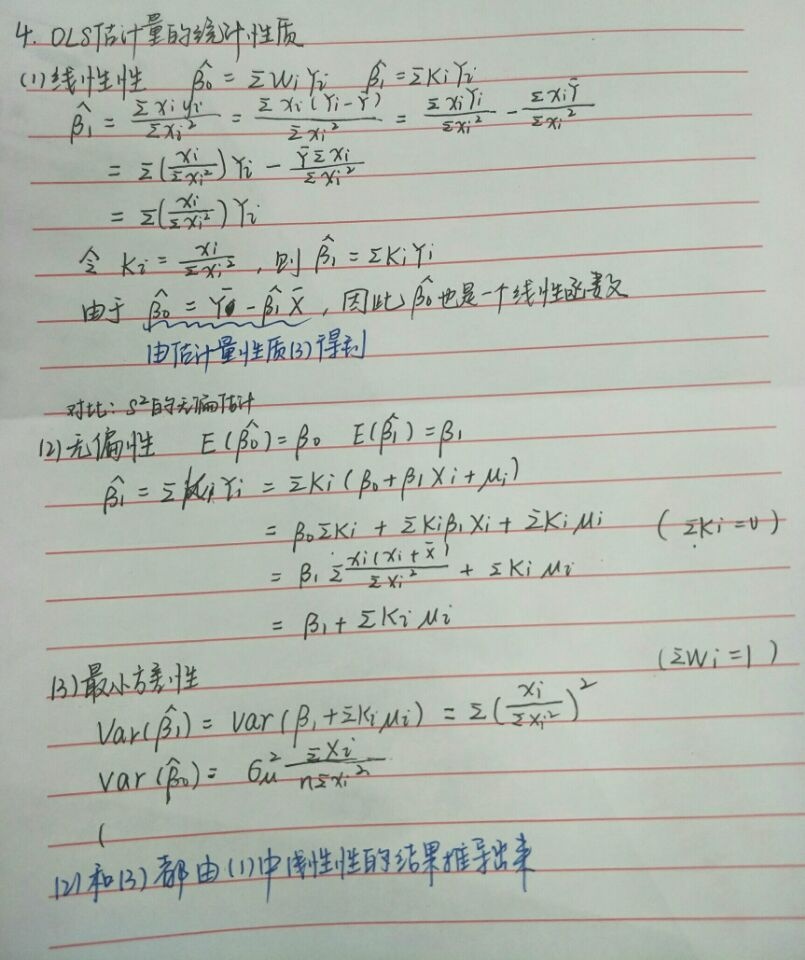 4. OLS估计量的统计性质
(1)线性性 β̂₀ = ΣWiYi β̂₁ = ΣKiYi
β̂₁ = Σxiyi/Σxi² = Σxi(Yi-Ȳ)/Σxi² = ΣxiYi/Σxi² - ΣxiȲ/Σxi²
= Σ(xi/Σxi²)Yi - ȲΣxi/Σxi²
= Σ(xi/Σxi²)Yi
令 Ki = xi/Σxi², 则 β̂₁ = ΣKiYi
由于 β̂₀ = Ȳ - β̂₁X̄, 因此 β̂₀也是一个线性函数
由估计量性质(3)得到
对比: S²的无偏估计
(2)无偏性 E(β̂₀)=β₀ E(β̂₁)=β₁
β̂₁ = ΣKiYi = ΣKi(β₀+β₁Xi+μi)
= β₀ΣKi + ΣKiβ₁Xi + ΣKiμi (ΣKi=0)
= β₁Σxi(xi+x̄)/Σxi² + ΣKiμi
= β₁+ΣKiμi
(ΣWi=1)
(3)最小方差性
Var(β̂₁) = var(β₁+ΣKiμi) = Σ(xi/Σxi²)²
var(β̂₀) = σμ² ΣXi/nΣxi²
(
(2)和(3)都由(1)中线性性的结果推导出来